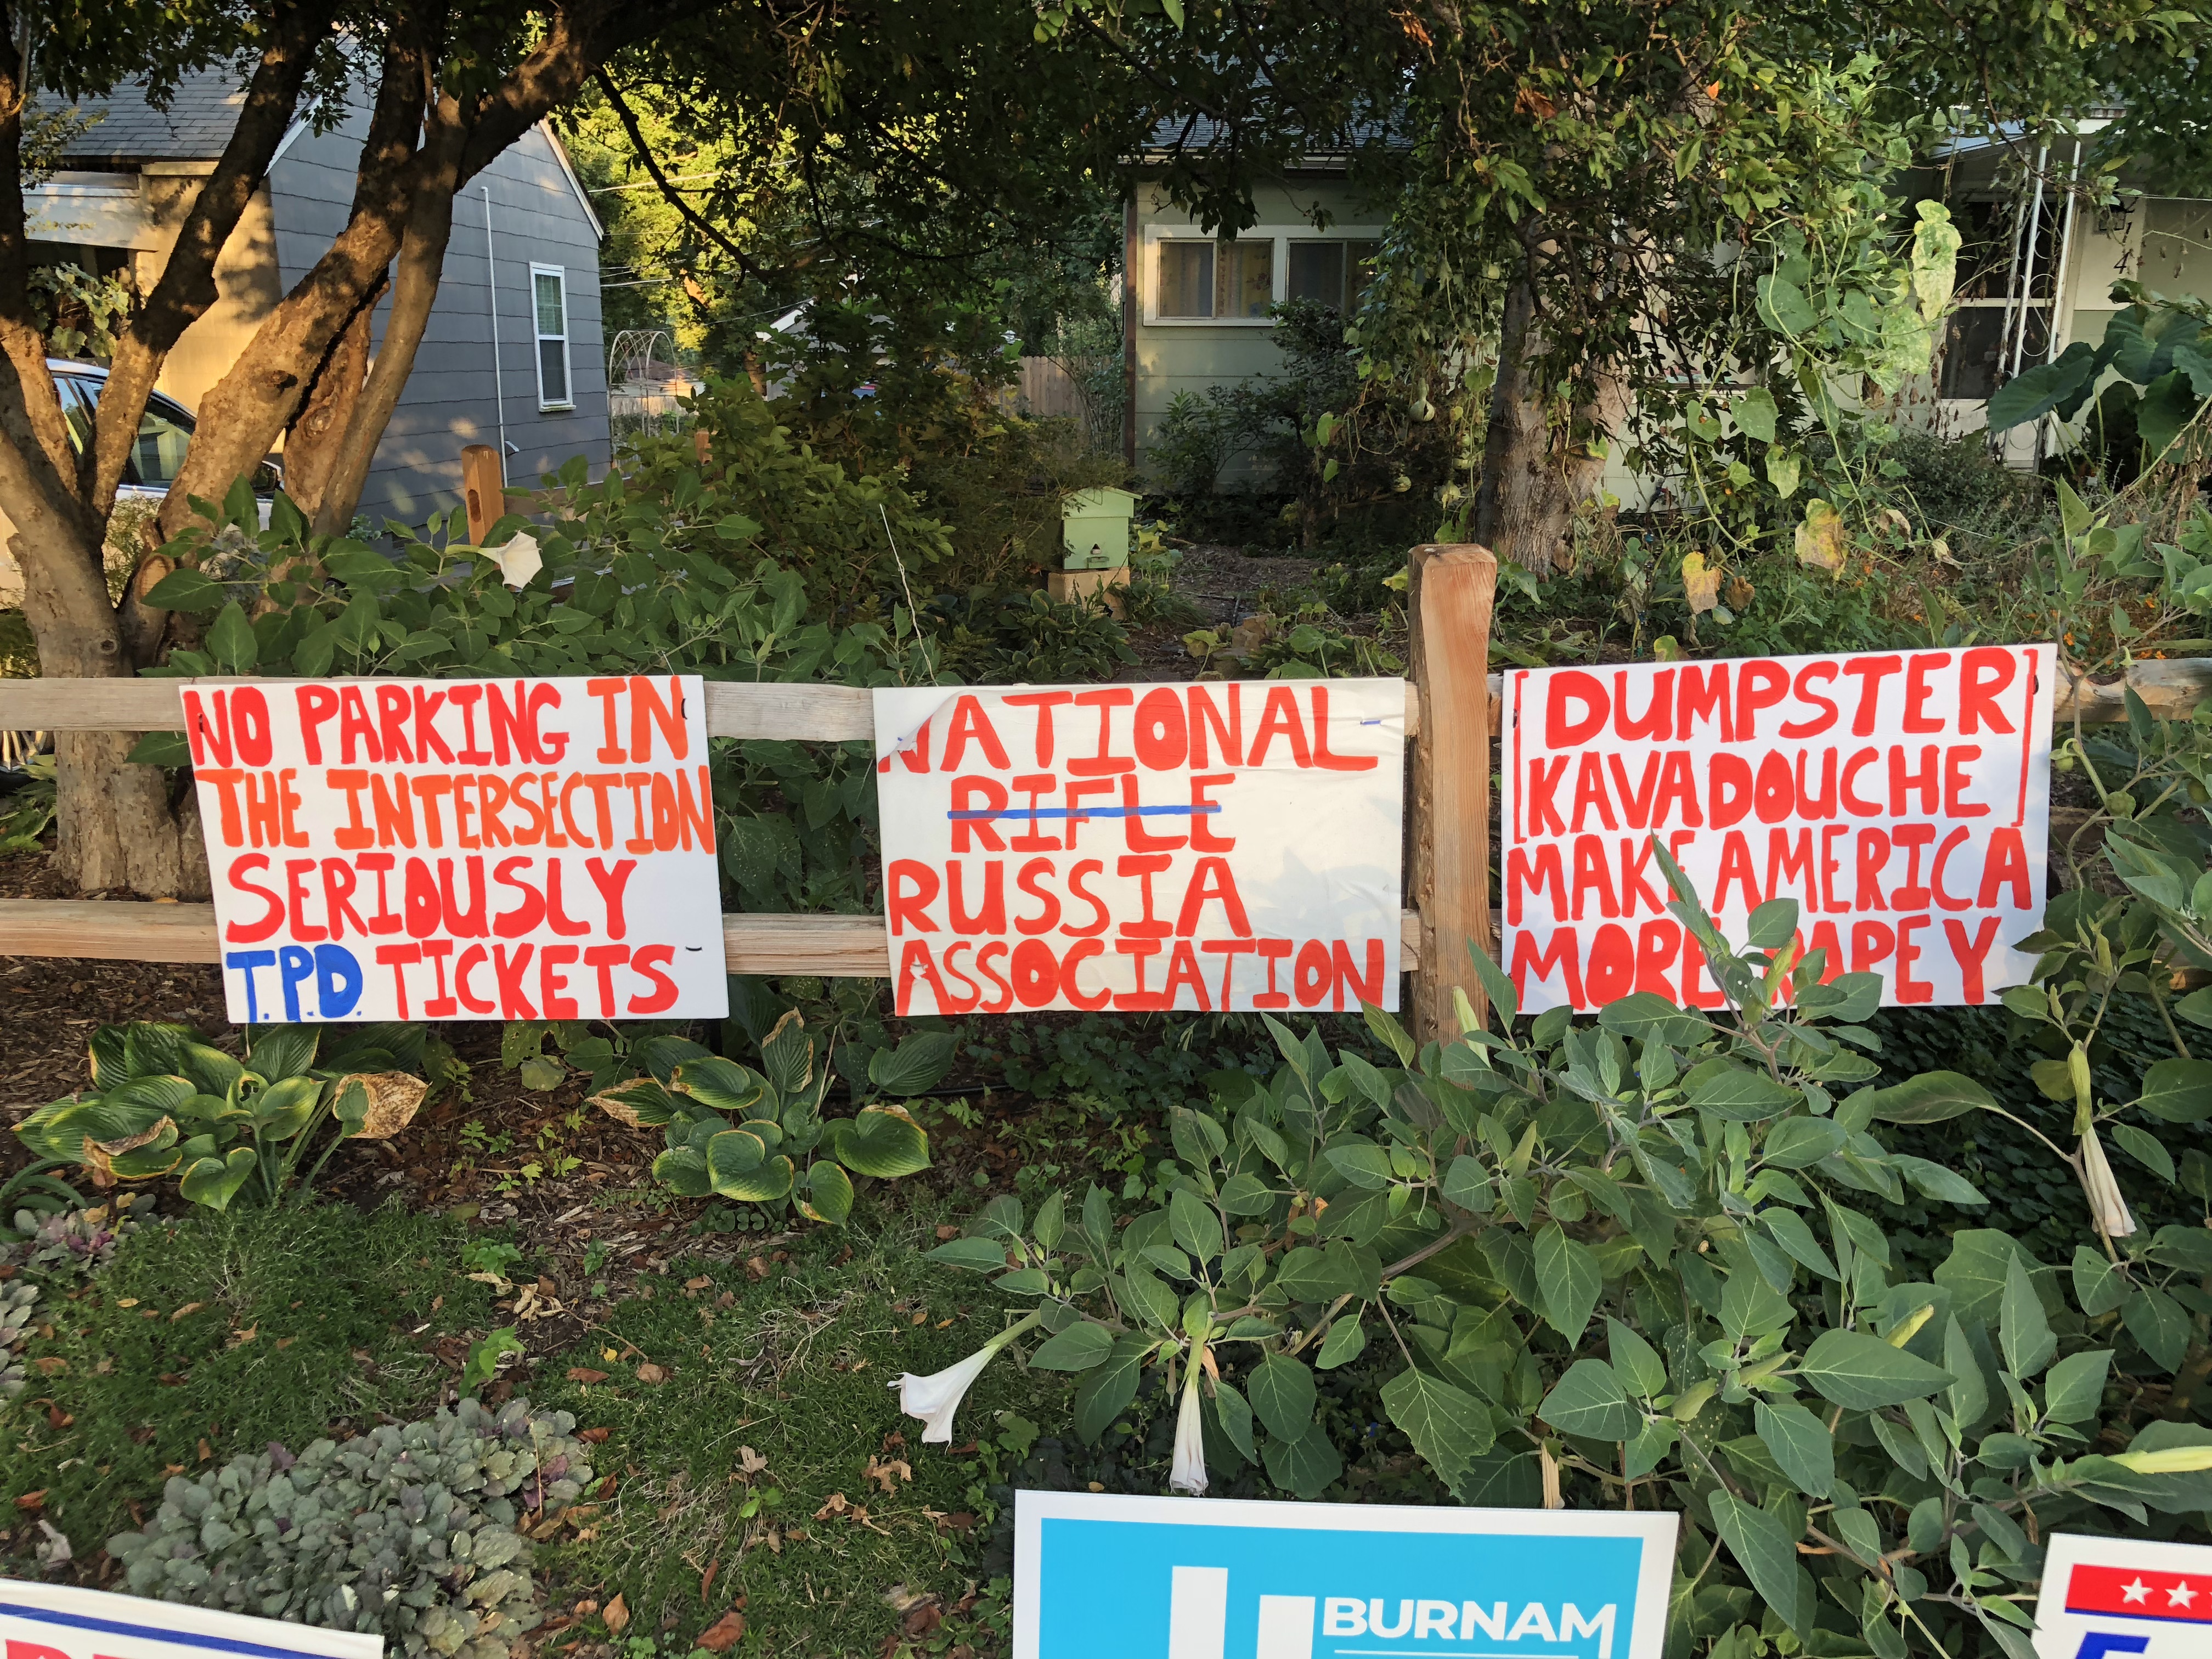 NO PARKING IN
THE INTERSECTION
SERIOUSLY
T.P.D. TICKETS
NATIONAL
RIFLE
RUSSIA
ASSOCIATION
[DUMPSTER]
[KAVADOUCHE]
MAKE AMERICA
MORE RAPEY
BURNAM